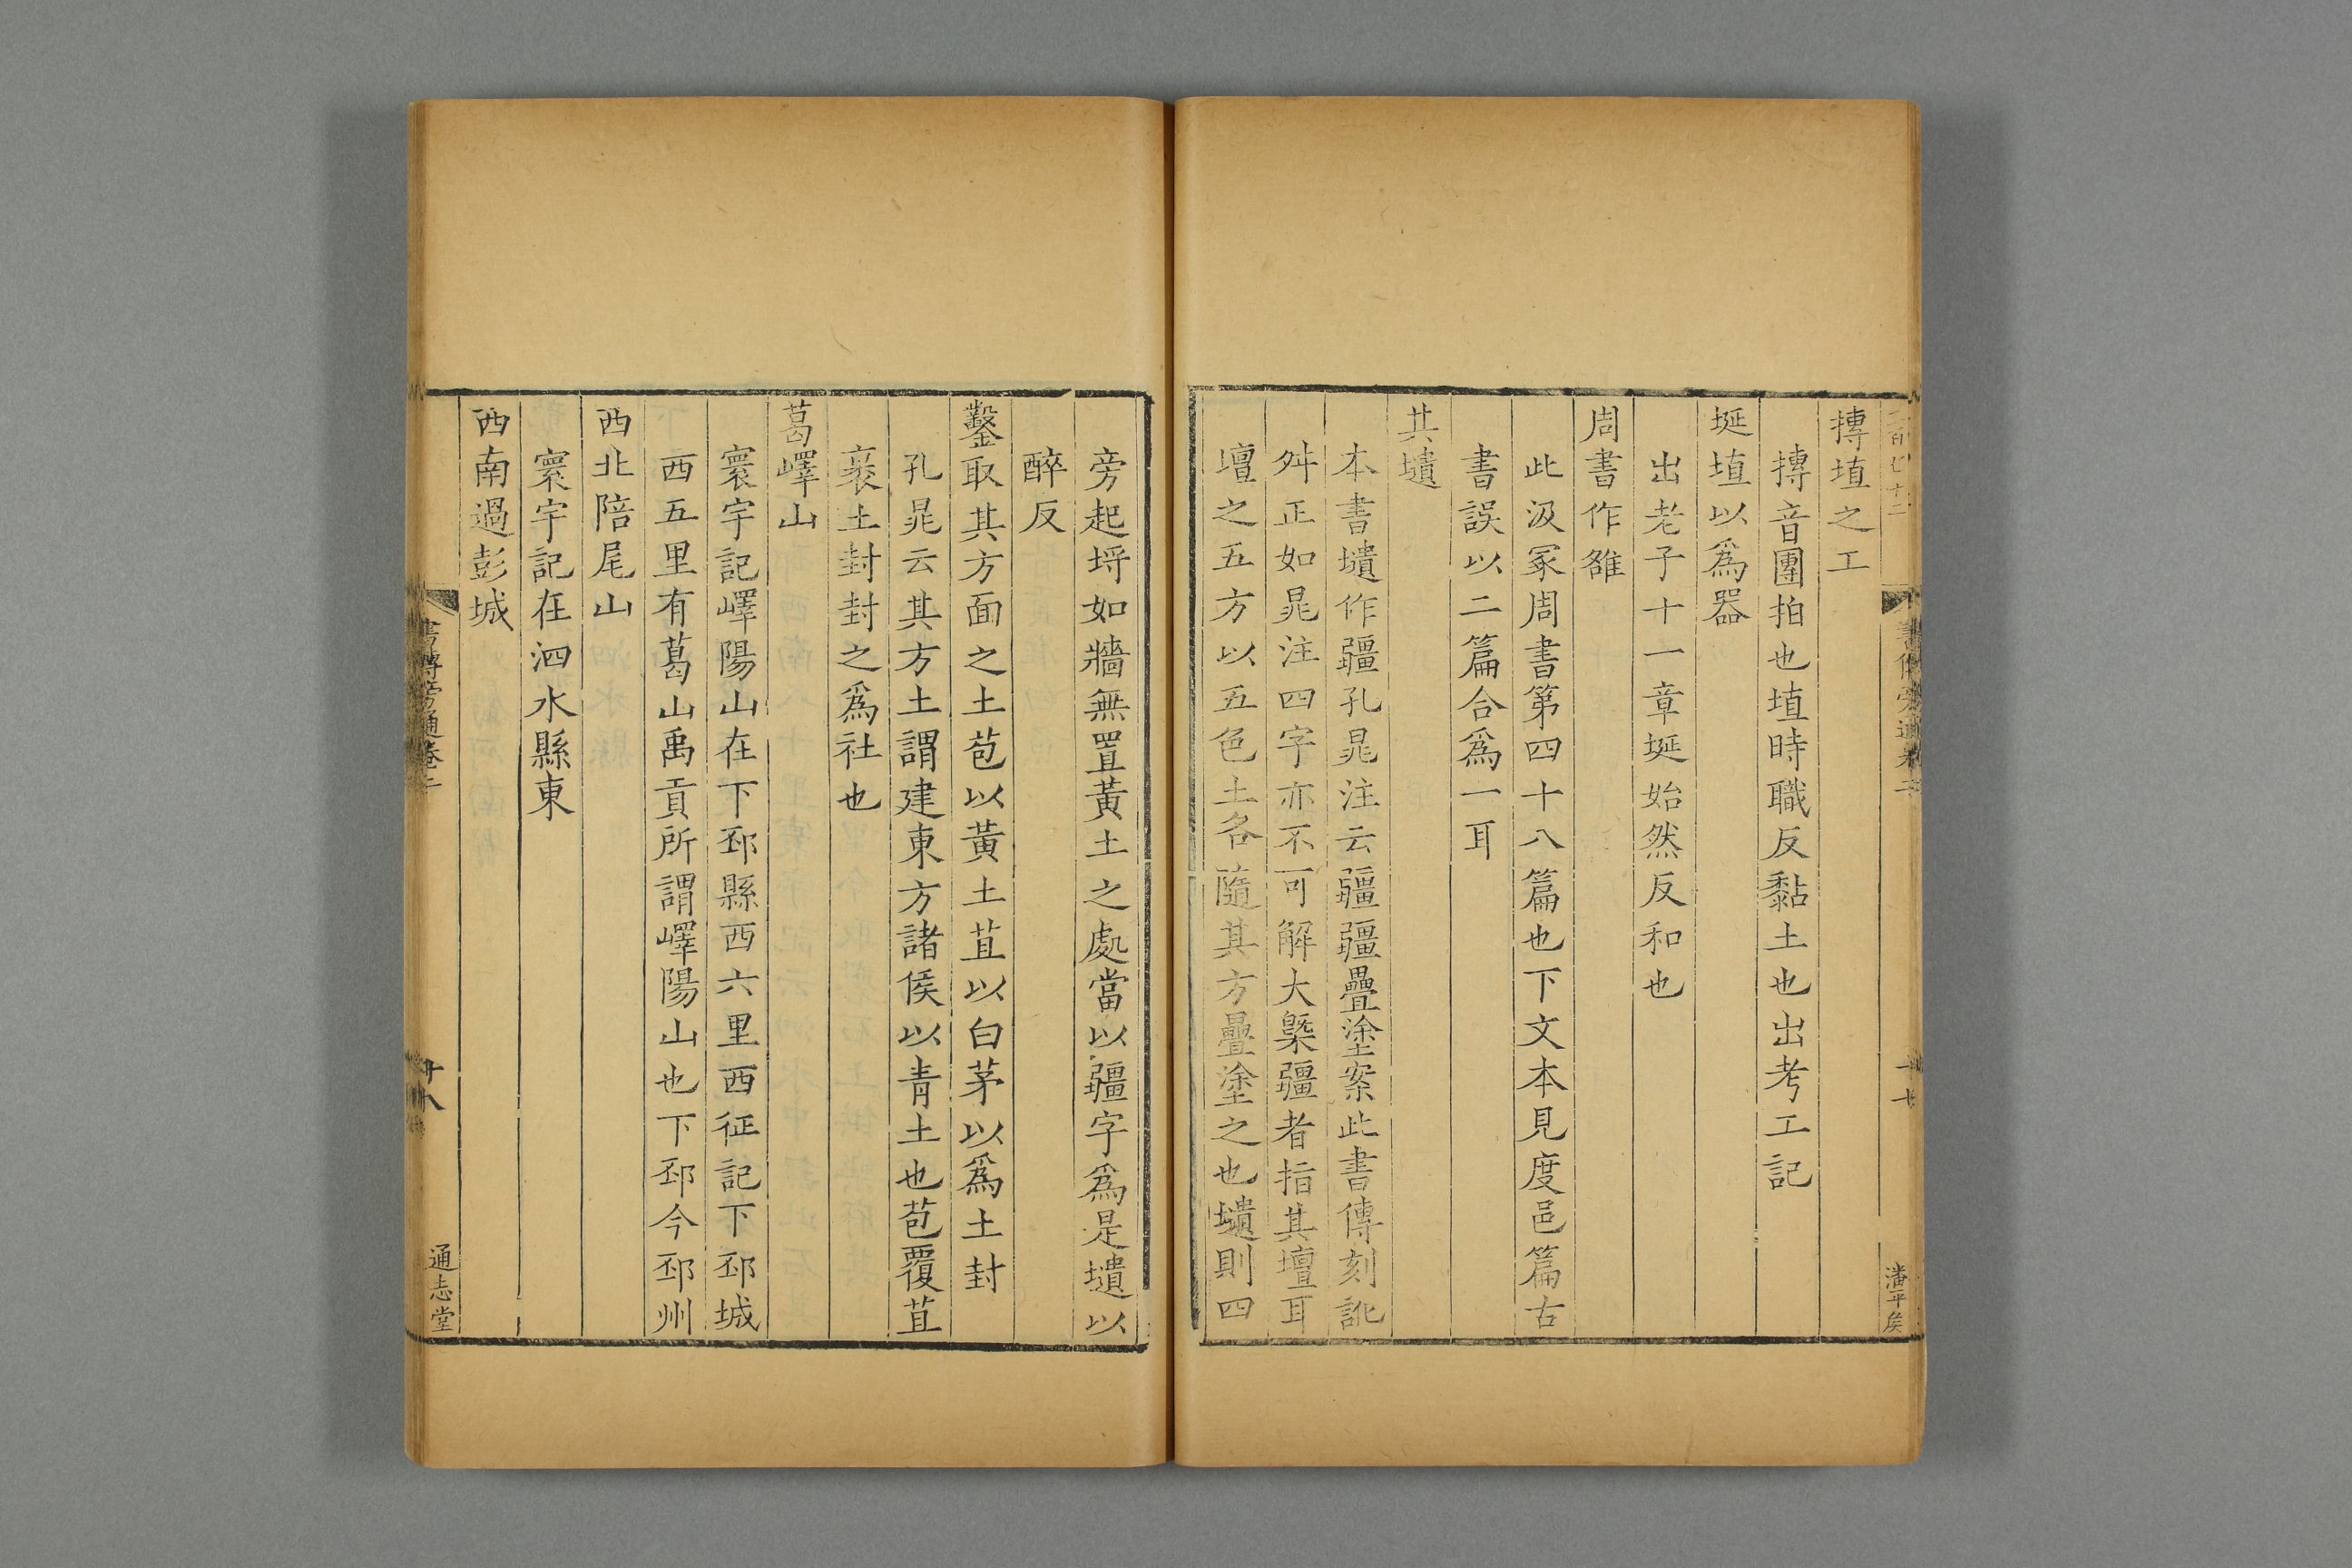 摶埴之工
摶音團拍也埴時職反黏土也出考工記
埏埴以爲器
出老子十一章埏始然反和也
周書作雒
此汲冡周書第四十八篇也下文本見度邑篇古
書誤以二篇合爲一耳
其壝
本書壝作疆孔晁注云疆疆疊塗案此書傳刻訛
舛正如晁注四字亦不可解大槩疆者指其壇耳
壇之五方以五色土各隨其方疊塗之也壝則四
潘平矦
旁起埒如牆無置黃土之處當以疆字爲是壝以
醉反
鑿取其方面之土苞以黃土苴以白茅以爲土封
孔晁云其方土謂建東方諸侯以青土也苞覆苴
裹土封封之爲社也
葛嶧山
寰宇記嶧陽山在下邳縣西六里西征記下邳城
西五里有葛山禹貢所謂嶧陽山也下邳今邳州
西北陪尾山
寰宇記在泗水縣東
西南過彭城
書傳旁通卷二
十八
通志堂